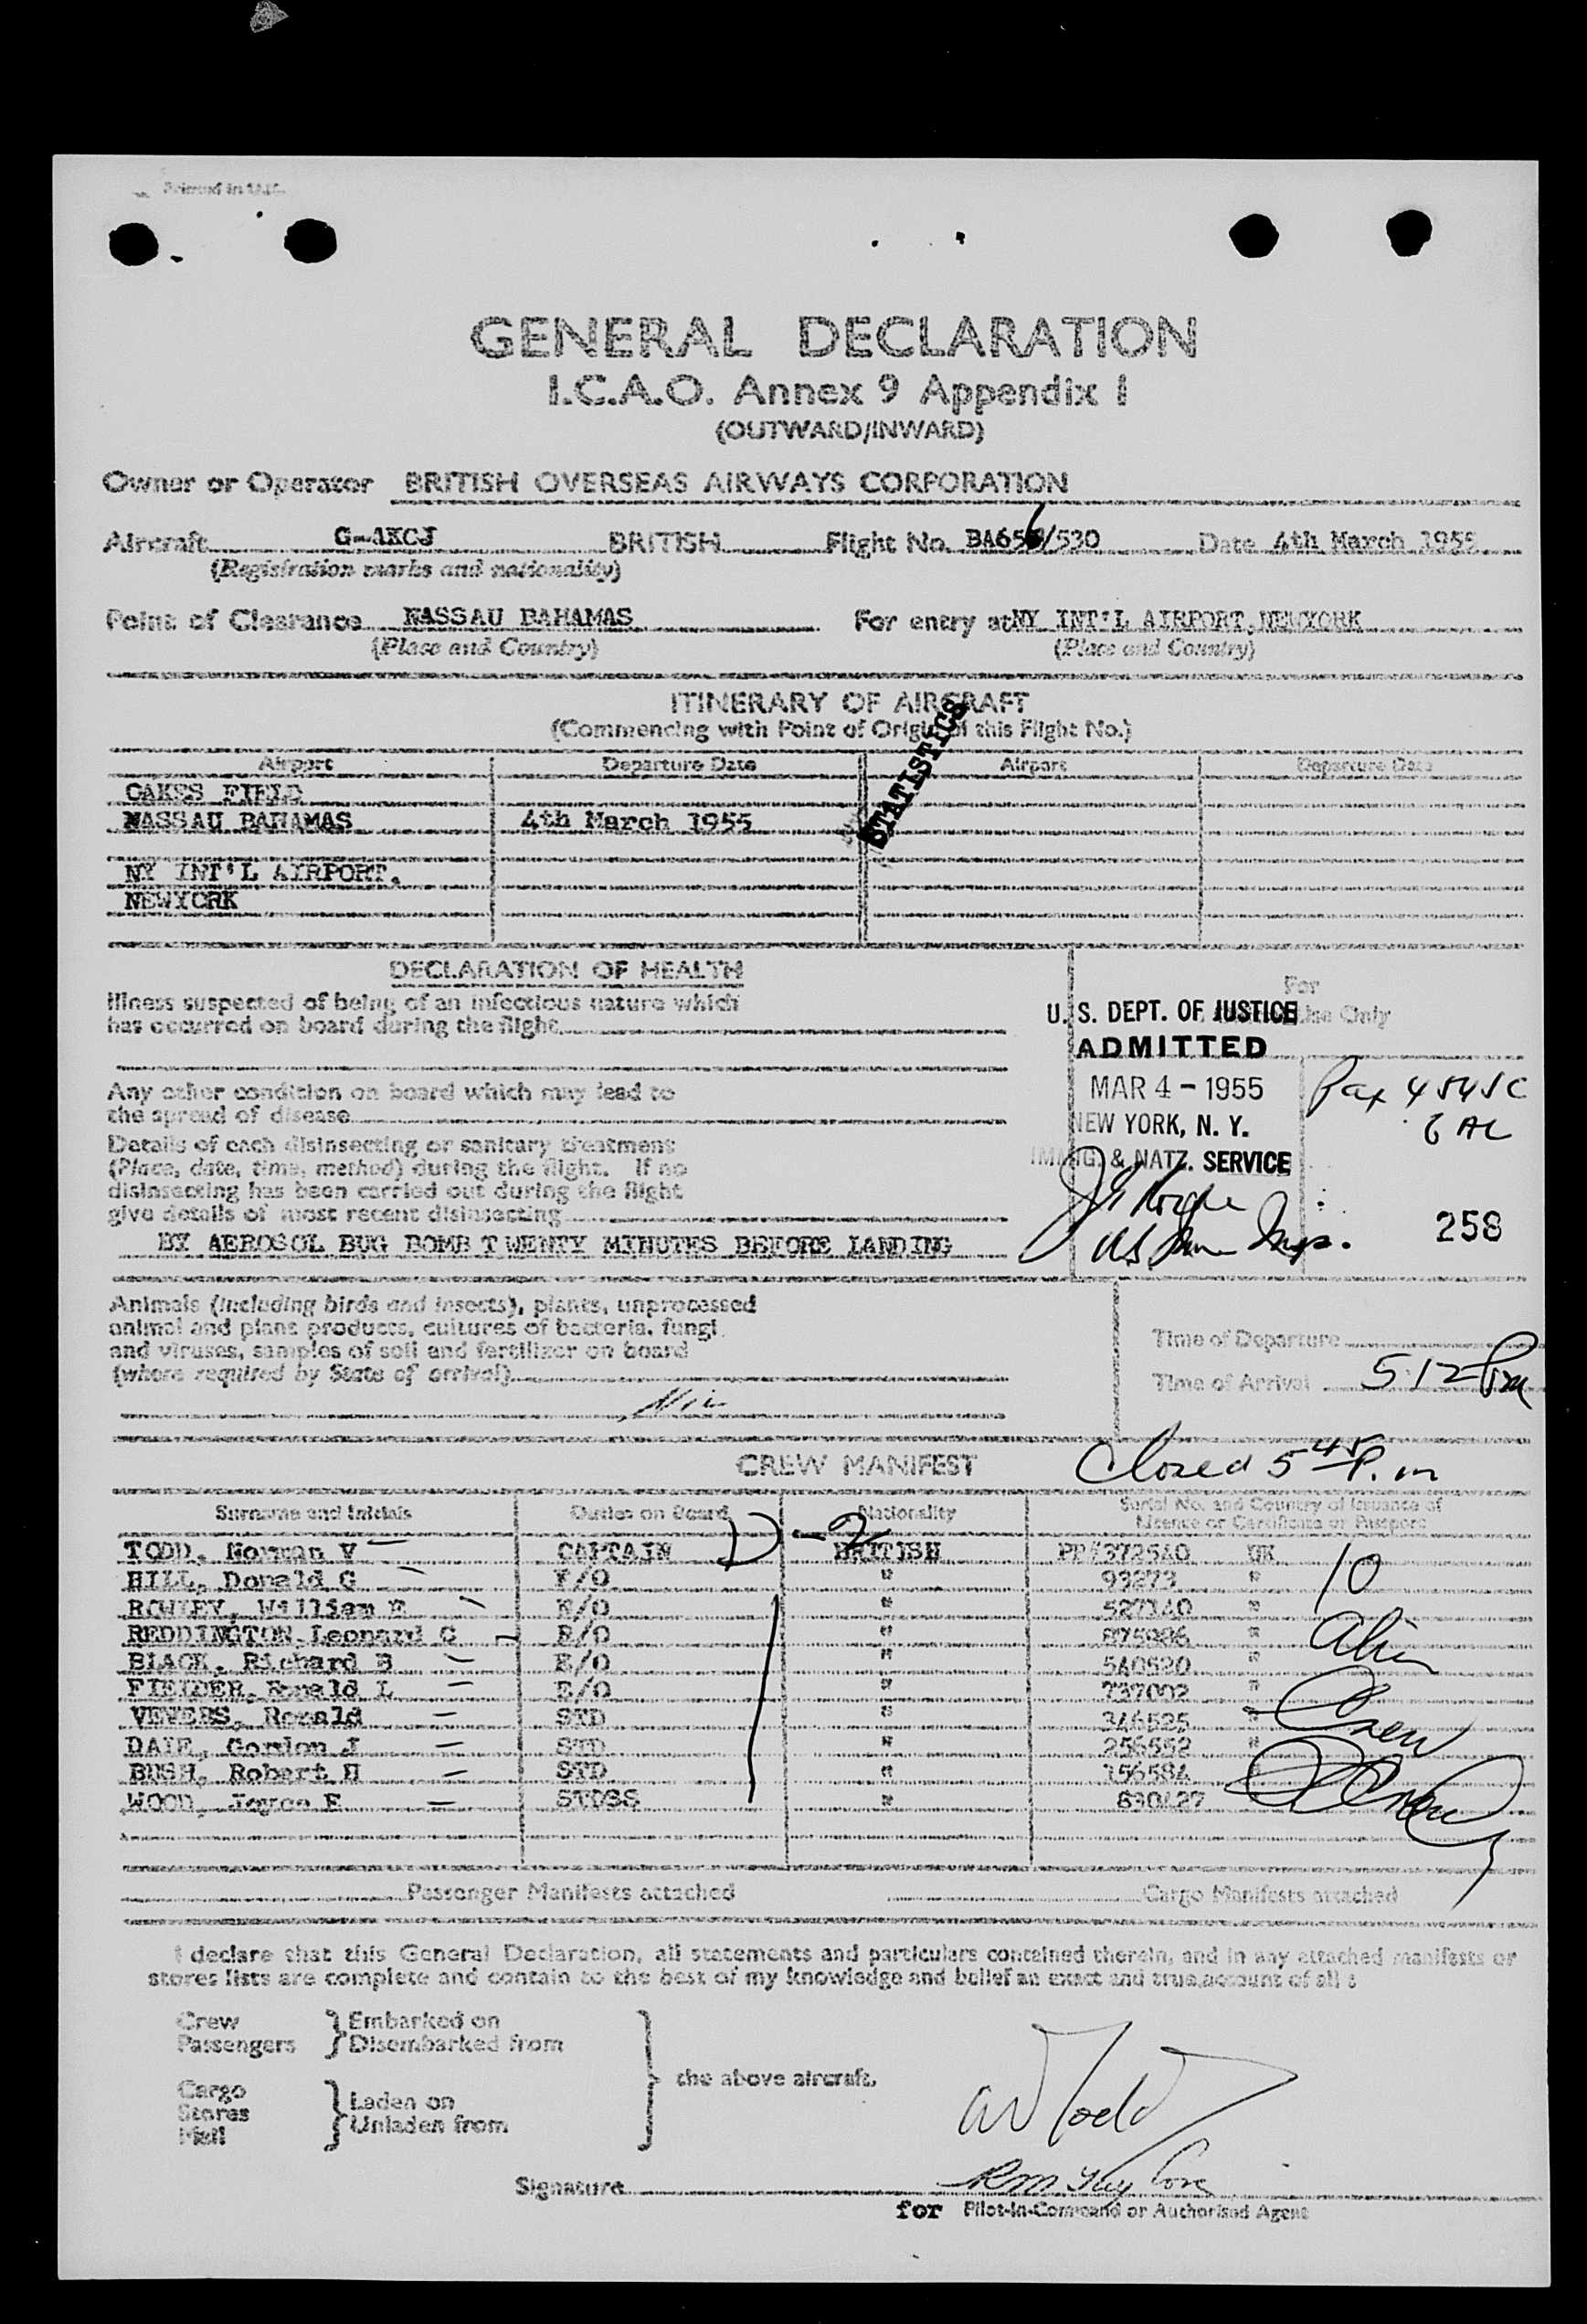 Printed in U.K.
GENERAL DECLARATION
I.C.A.O. Annex 9 Appendix I
(OUTWARD/INWARD)
Owner or Operator BRITISH OVERSEAS AIRWAYS CORPORATION
Aircraft G-AKCJ BRITISH Flight No. BA656/530 Date 4th March 1955
(Registration marks and nationality)
Point of Clearance NASSAU BAHAMAS For entry at NY INT'L AIRPORT, NEWYORK
(Place and Country) (Place and Country)
ITINERARY OF AIRCRAFT
(Commencing with Point of Origin of this Flight No.)
STATISTICS
Airport Departure Date Airport Departure Date
OAKES FIELD
NASSAU BAHAMAS 4th March 1955
NY INT'L AIRPORT,
NEWYORK
DECLARATION OF HEALTH
Illness suspected of being of an infectious nature which
has occurred on board during the flight
Any other condition on board which may lead to
the spread of disease
Details of each disinsecting or sanitary treatment
(Place, date, time, method) during the flight. If no
disinsecting has been carried out during the flight
give details of most recent disinsecting
BY AEROSOL BUG BOMB TWENTY MINUTES BEFORE LANDING
For
Use Only
U. S. DEPT. OF JUSTICE
ADMITTED
MAR 4 - 1955
NEW YORK, N. Y.
IMMIG. & NATZ. SERVICE
Pax
258
Animals (including birds and insects), plants, unprocessed
animal and plant products, cultures of bacteria, fungi
and viruses, samples of soil and fertilizer on board
(where required by State of arrival)
Nil
Time of Departure
Time of Arrival 5:12 Pm
Closed 5 45 P.m
CREW MANIFEST
Surname and Initials Duties on Board Nationality Serial No. and Country of Issuance of
Licence or Certificate or Passport
D-2
TODD, Norman V CAPTAIN BRITISH PP#372540 UK
HILL, Donald G F/O " 93273 "
ROWLEY, William E E/O " 527140 "
REDDINGTON, Leonard G R/O " "
BLACK, Richard B E/O " 540520 "
FIELDER, Ronald L E/O " 737002 "
VENESS, Ronald STD " 346525 "
DALE, Gordon J STD " 256552 "
BUSH, Robert H STD " 156584 "
WOOD, Joyce E STDSS " 630427
10
Alien
Crew
Passenger Manifests attached Cargo Manifests attached
I declare that this General Declaration, all statements and particulars contained therein, and in any attached manifests or
stores lists are complete and contain to the best of my knowledge and belief an exact and true account of all :
Crew Embarked on
Passengers Disembarked from
the above aircraft.
Cargo Laden on
Stores Unladen from
Mail
Signature
for Pilot-in-Command or Authorised Agent